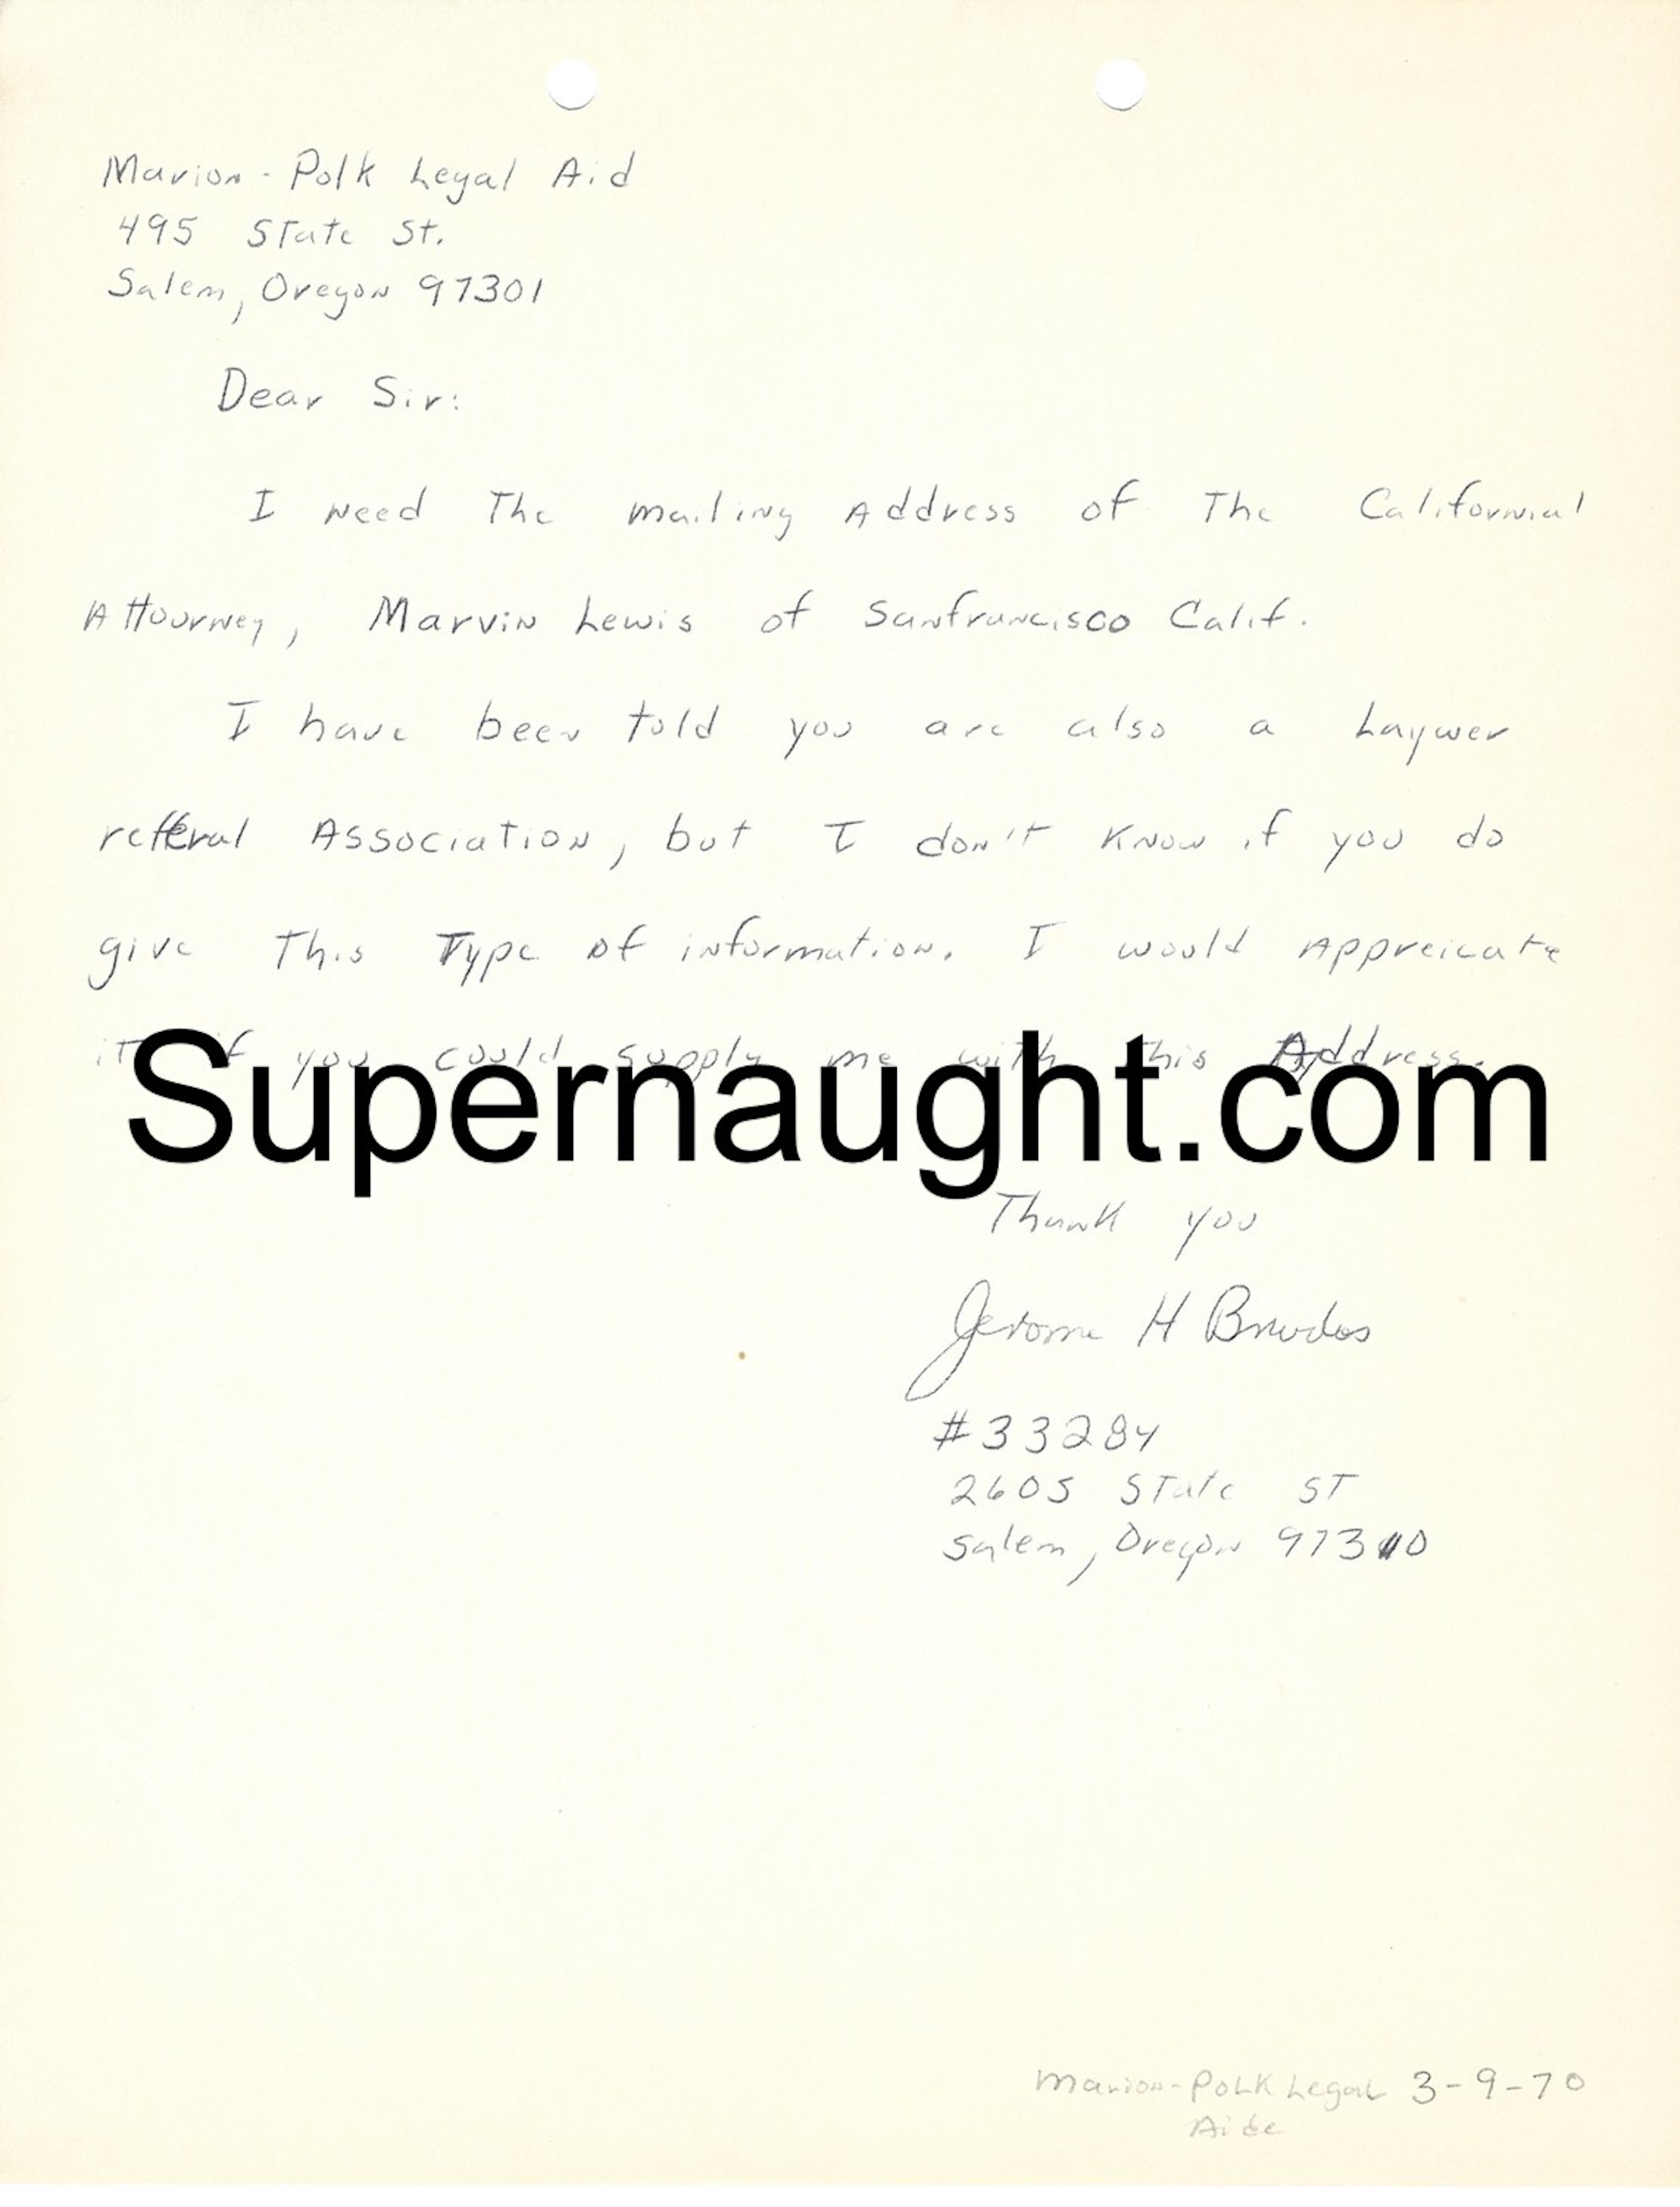 Marion-Polk Legal Aid
495 State St.
Salem, Oregon 97301
Dear Sir:
I Need The mailing Address of The Californial
Attourney, Marvin Lewis of Sanfrancisco Calif.
I have been told you are also a Laywer
refferal Association, but I don't know if you do
give This Type of information. I would Appreicate
it if you could supply me with this Address.
Supernaught.com
Thank you
Jerome H Brudos
#33284
2605 State ST
Salem, Oregon 97310
Marion-Polk Legal 3-9-70
Aide